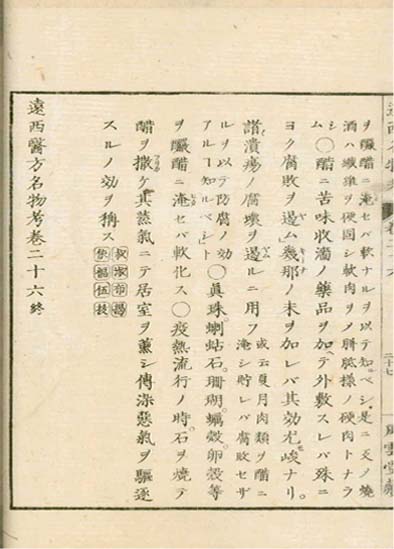 ヲ釅醋ニ淹セバ軟ナルヲ以テ知ルベシ是ニ反ノ燒
酒ハ纖維ヲ硬固シ軟肉ヲノ胼胝樣ノ硬肉トナラ
シム〇醋ニ苦味收濇ノ藥品ヲ加テ外敷スレバ殊ニ
ヨク腐敗ヲ遏ム幾那ノ末ヲ加レバ其効尤峻ナリ。
諸潰瘍ノ腐壞ヲ遏ルニ用フ 或云夏月肉類ヲ醋ニ
淹シ貯レバ腐敗セザ
ルヲ以テ防腐ノ効
アルヿ知ルベシト 〇眞珠。蝲蛄石。珊瑚。蠣殻。卵殻等
ヲ釅醋ニ淹セバ軟化ス〇疫熱流行ノ時。石ヲ燒テ
醋ヲ撒ケ其蒸氣ニテ居室ヲ薰シ傳染惡氣ヲ驅逐
スルノ効ヲ稱ス
遠西醫方名物考卷二十六終
二十七